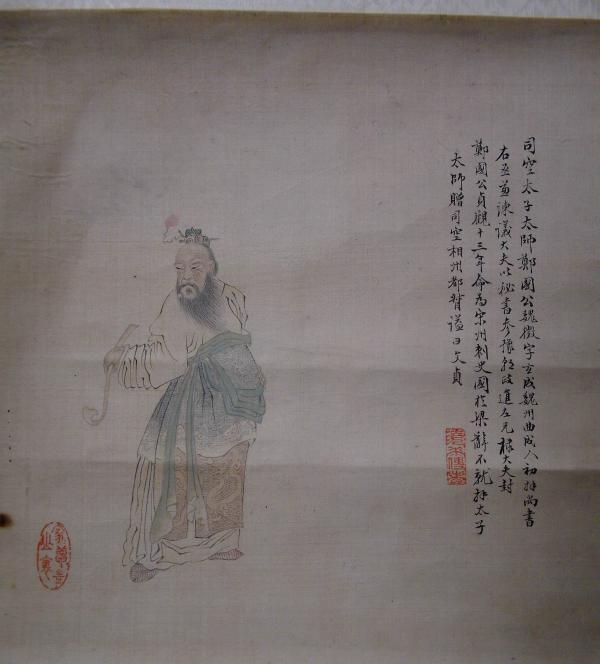 司空太子太師鄭國公魏徵字玄成魏州曲成人初拜尚書
右丞兼諫議大夫以秘書參豫朝政進左光祿大夫封
鄭國公貞觀十三年命為宋州刺史國於梁辭不就拜太子
太師贈司空相州都督謚曰文貞